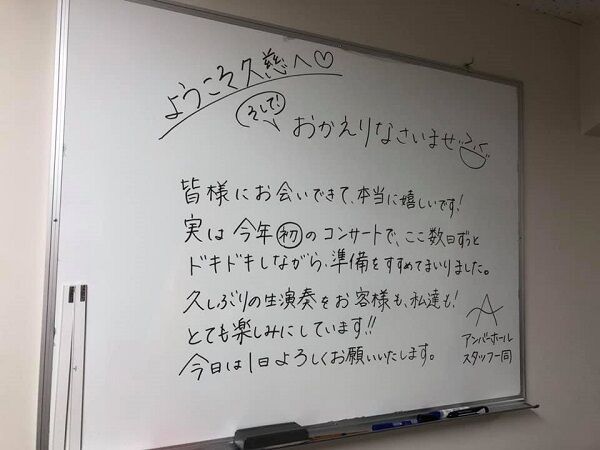 ようこそ久慈へ♡
そして!
おかえりなさいませ
皆様にお会いできて、本当に嬉しいです!
実は今年初のコンサートで、ここ数日ずっと
ドキドキしながら、準備をすすめてまいりました。
久しぶりの生演奏をお客様も、私達も!
とても楽しみにしています!!
今日は1日よろしくお願いいたします。
アンバーホール
スタッフ一同